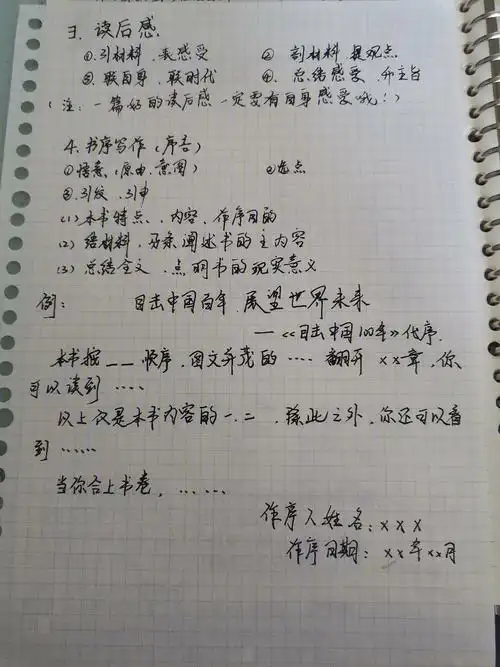 3. 读后感
①.引材料.表感受 ② 剖材料.提观点
③.联自身.联时代 ④. 总结感受.升主旨
(注:一篇好的读后感一定要有自身感受哦!)
4. 书序写作(序言)
①情意(原由.意图) ②选点
③.引纹.引申
(1)本书特点、内容、作序目的
(2) 结材料.另条阐述书的主内容
(3) 总结全文.点明书的现实意义
例: 目击中国百年.展望世界未来
—《目击中国100年》代序.
本书按__顺序,图文并茂的···· 翻开××章,你
可以读到····
以上仅是本书内容的一.二.除此之外,你还可以看
到······
当你合上书卷,······
作序人姓名:×××
作序日期:××年××月